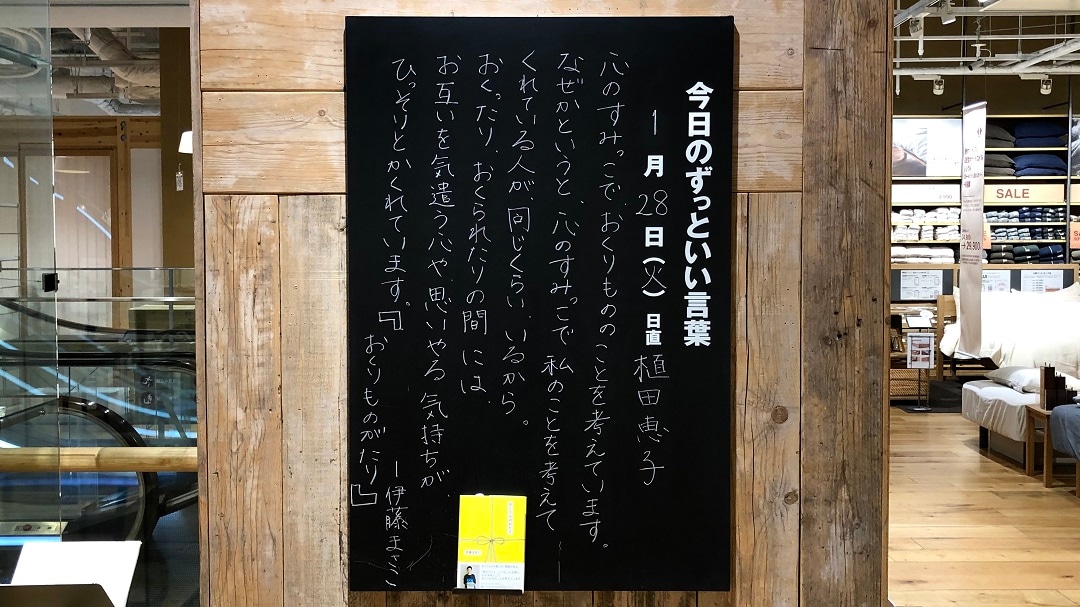 今日のずっといい言葉
1月28日(火)日直 植田恵子
心のすみっこで、おくりもののことを考えています。
なぜかというと、心のすみっこで私のことを考えて
くれている人が同じくらい、いるから。
おくったり、おくられたりの間には、
お互いを気遣う心や、思いやる気持ちが、
ひっそりとかくれています。
『おくりものがたり』
ー伊藤まさこ
SALE
→29,900